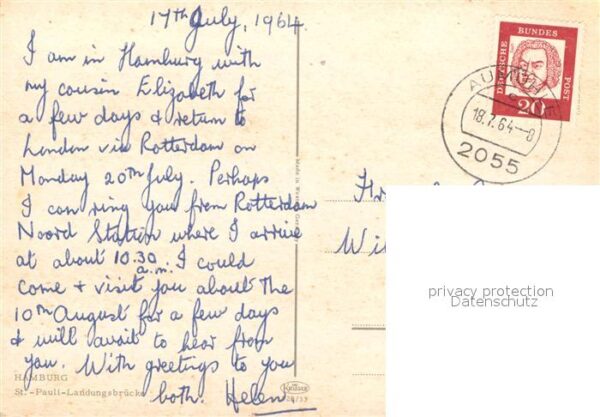 17th July, 1964.
I am in Hamburg with
my cousin Elizabeth for
a few days & return to
London via Rotterdam on
Monday 20th July. Perhaps
I can ring you from Rotterdam
Noord Station where I arrive
at about 10.30
a.m. I could
come & visit you about the
10th August for a few days
& will await to hear from
you. With greetings to you
both. Helen
HAMBURG
St.-Pauli-Landungsbrücke
DEUTSCHE
BUNDES
POST
20
18.7.64-8
2055
Wi
privacy protection
Datenschutz